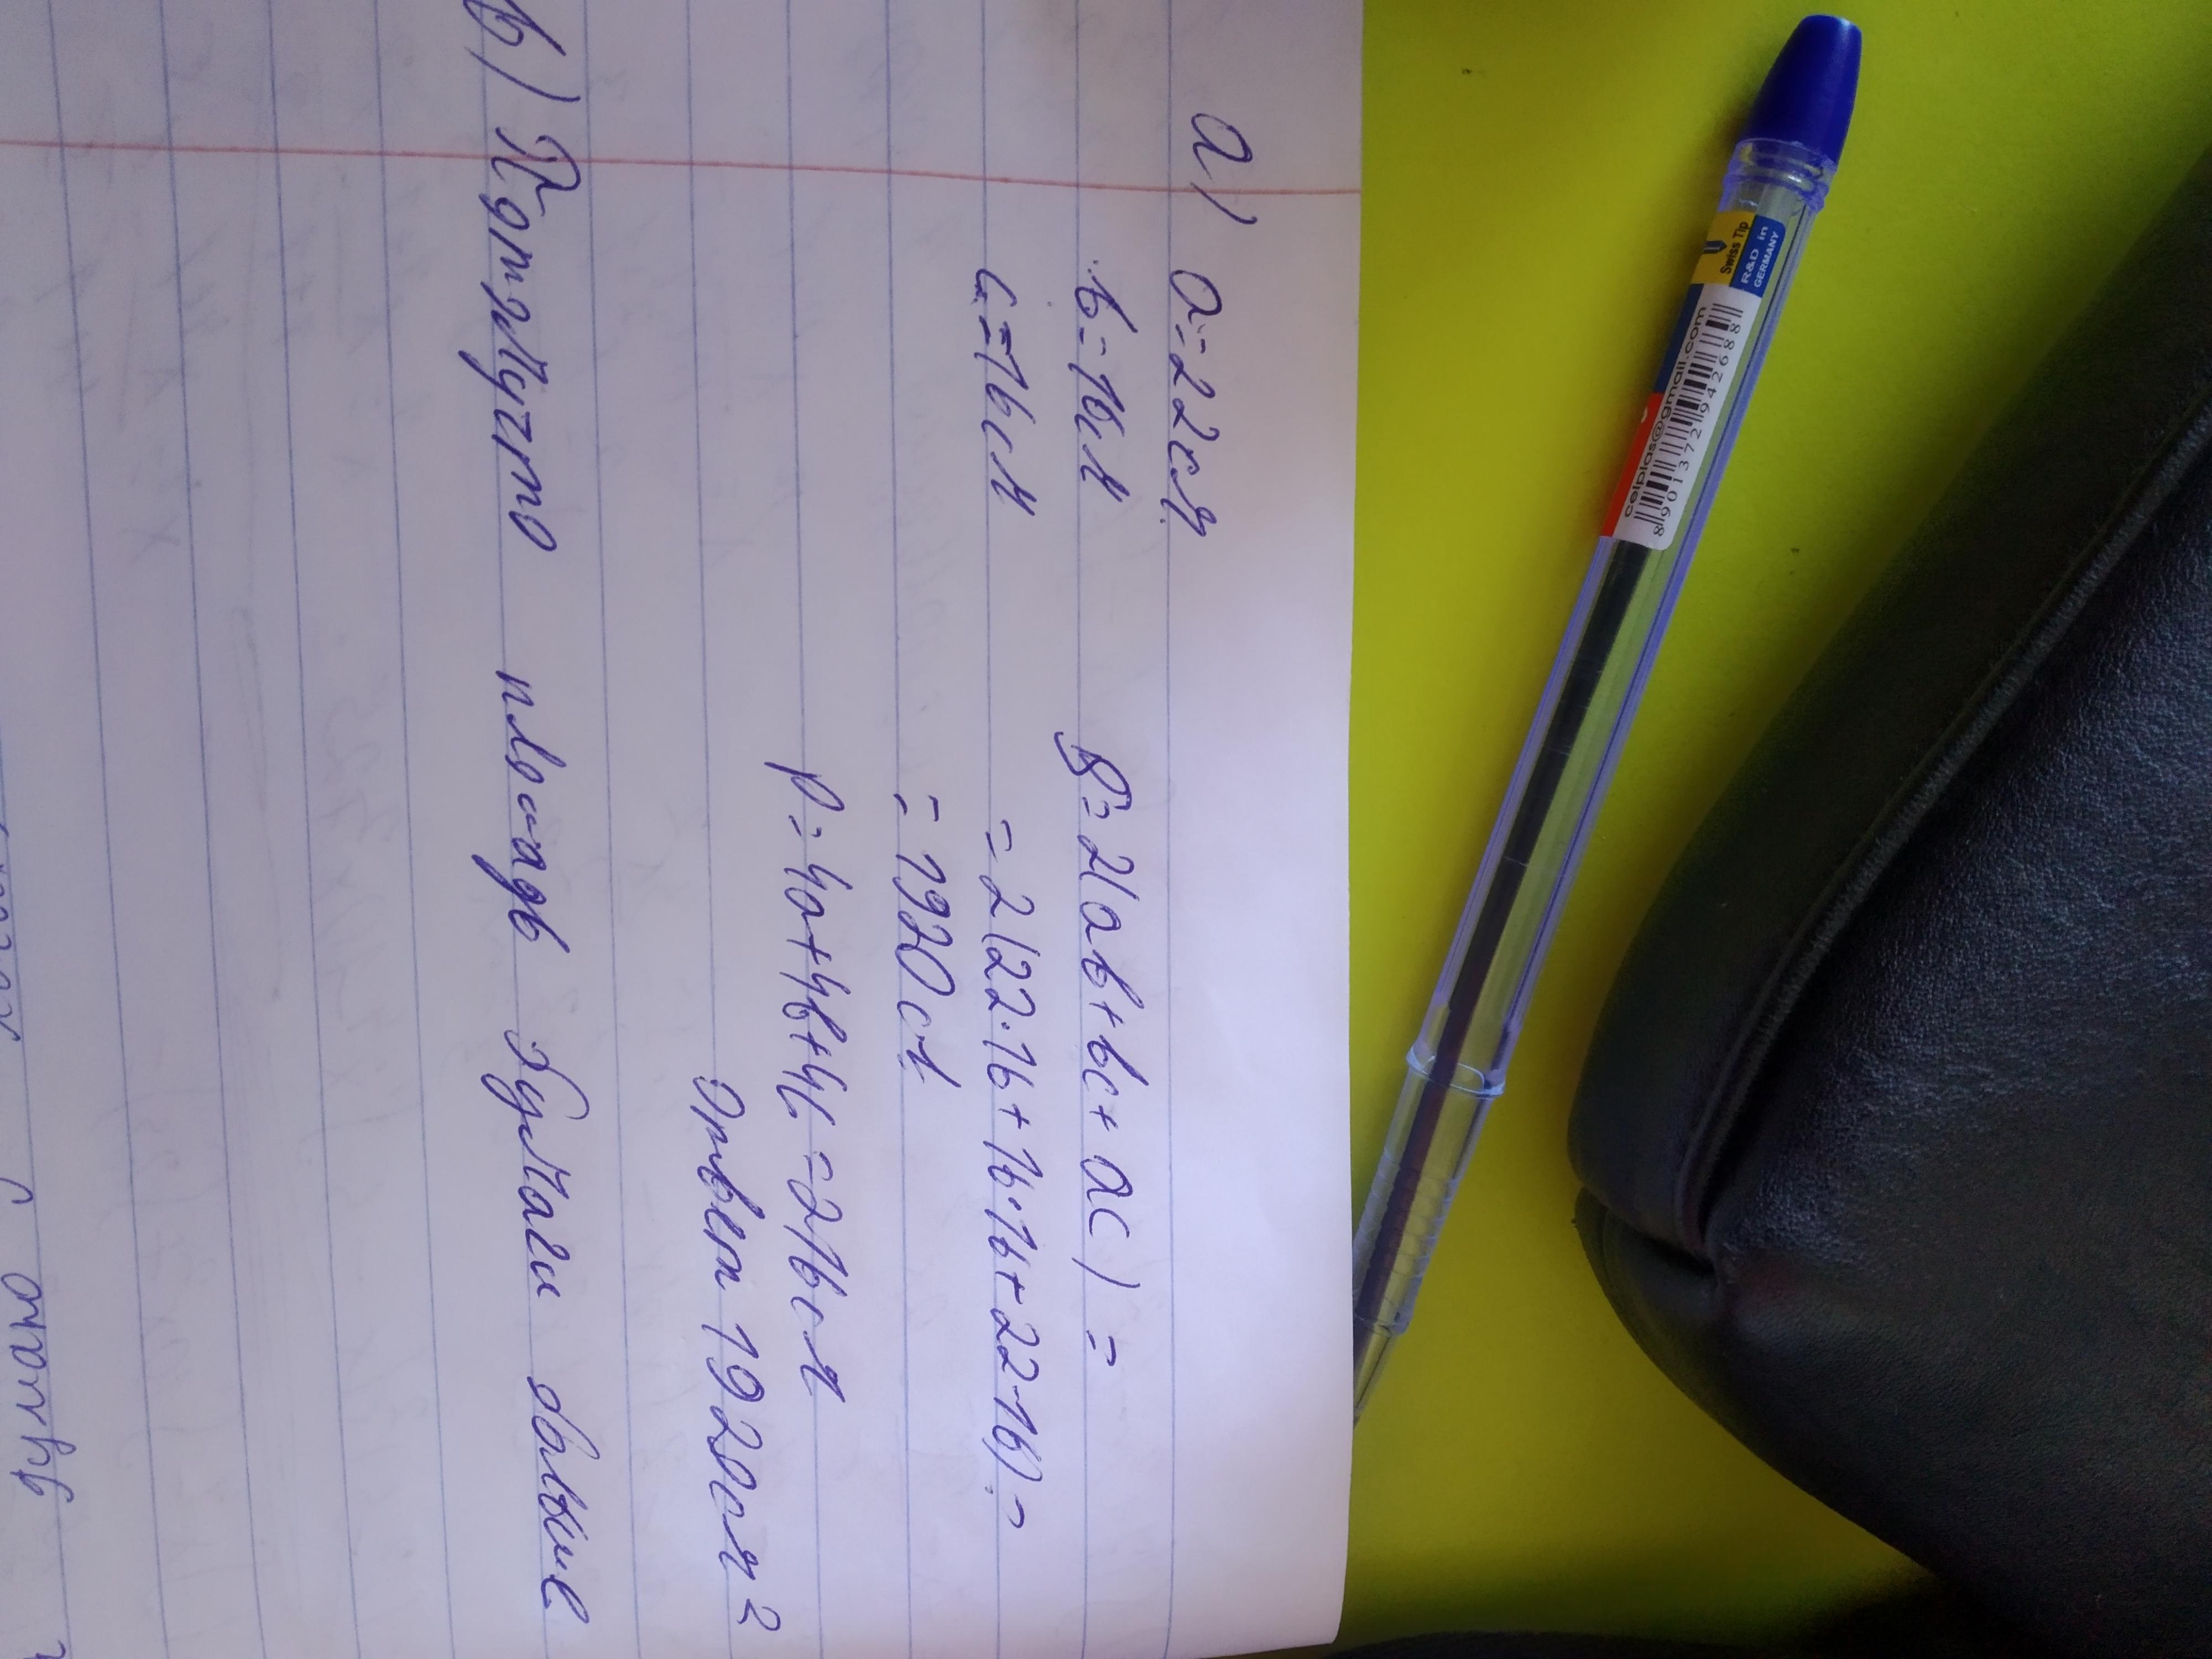 а) а=22см
в=16см
с=16см
S=2(ав+вс+ас)=
=2(22·16+16·16+22·16)=
=1920см
P=4а+4в+4с=216см
Ответ 1920см²
в) Потомучто площадь бумаги больше
думано
Swiss Tip
R&D in
GERMANY
celplas@gmail.com
8901372942688